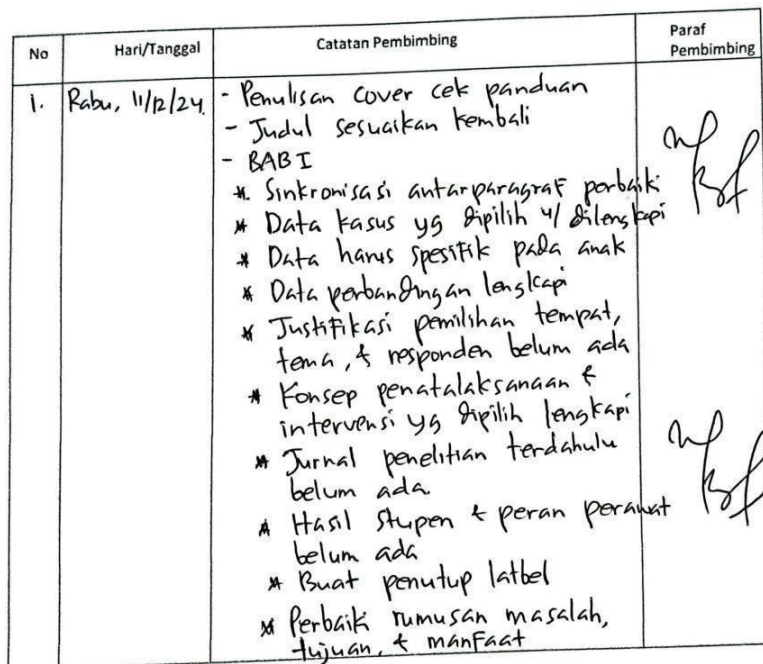 No Hari/Tanggal Catatan Pembimbing Paraf Pembimbing
1. Rabu, 11/12/24.
- Penulisan cover cek panduan
- Judul sesuaikan kembali
- BAB I
* Sinkronisasi antarparagraf perbaiki
* Data kasus yg dipilih u/ dilengkapi
* Data harus spesifik pada anak
* Data perbandingan lengkapi
* Justifikasi pemilihan tempat,
tema, & responden belum ada
* Konsep penatalaksanaan &
intervensi yg dipilih lengkapi
* Jurnal penelitian terdahulu
belum ada
* Hasil stupen & peran perawat
belum ada
* Buat penutup latbel
* Perbaiki rumusan masalah,
tujuan, & manfaat